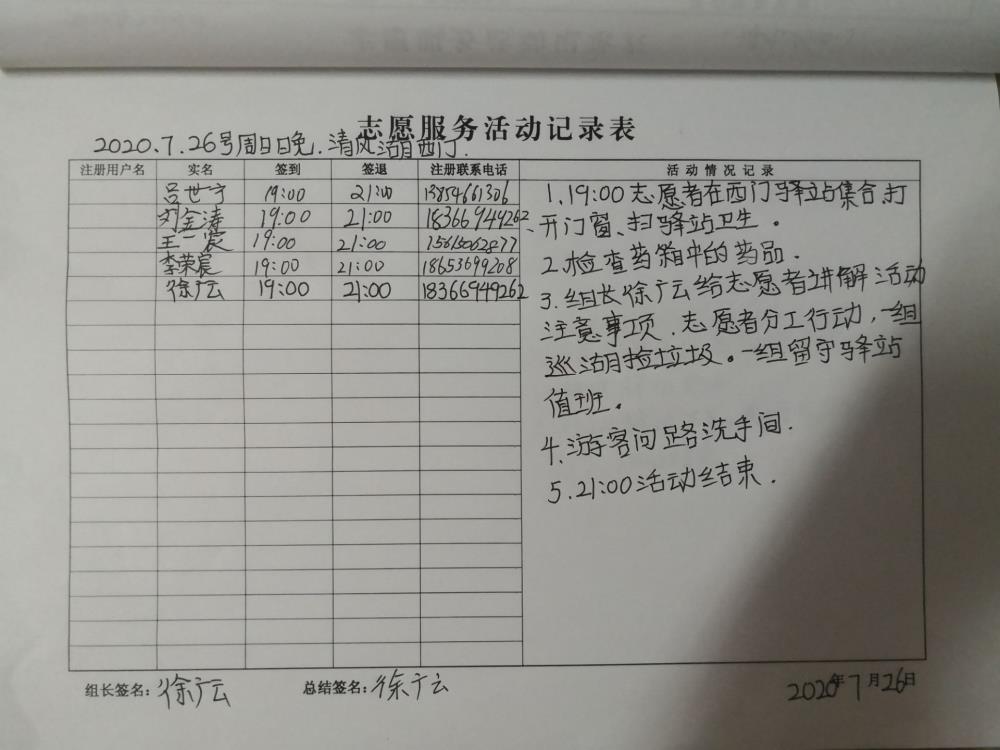 志愿服务活动记录表
2020.7.26号周日晚.清风湖西门.
注册用户名 实名 签到 签退 注册联系电话 活动情况记录
吕世宁 19:00 21:00 13854661306
刘金涛 19:00 21:00 18366949262
王一宸 19:00 21:00 15615062877
李荣宸 19:00 21:00 18653699208
徐广云 19:00 21:00 18366949262
1.19:00志愿者在西门驿站集合,打
开门窗、扫驿站卫生。
2.检查药箱中的药品.
3.组长徐广云给志愿者讲解活动
注意事项.志愿者分工行动,一组
巡湖捡垃圾。一组留守驿站
值班。
4.游客问路洗手间.
5.21:00活动结束.
组长签名:徐广云 总结签名:徐广云 2020年7月26日